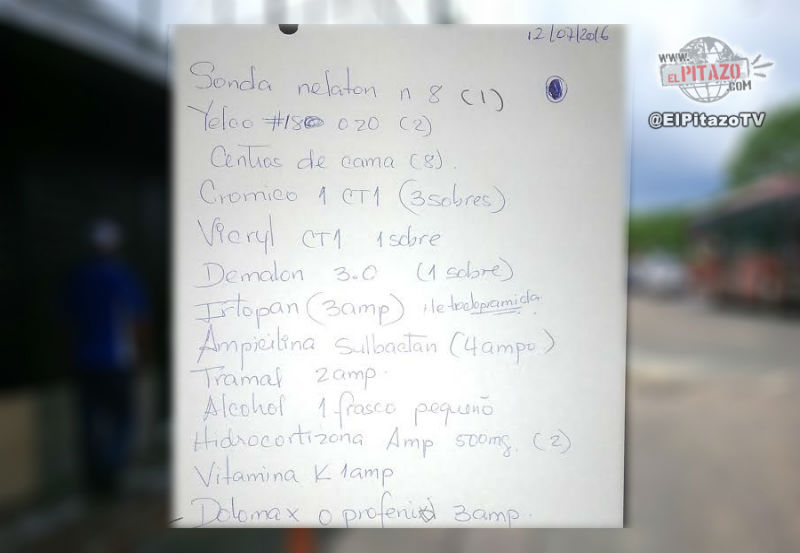 12/07/2016
www.
EL PITAZO
.COM
@ElPitazoTV
Sonda nelaton n 8 (1)
Yelco #18 o 20 (2)
Centros de cama (8).
Cromico 1 CT1 (3 sobres)
Vicryl CT1 1 sobre
Demalon 3.0 (1 sobre)
Irtopan (3 amp) Metoclopramida
Ampicilina Sulbactan (4 ampo.)
Tramal 2 amp.
Alcohol 1 frasco pequeño
Hidrocortizona Amp 500mg. (2)
Vitamina K 1 amp
Dolomax o profenid 3 amp.